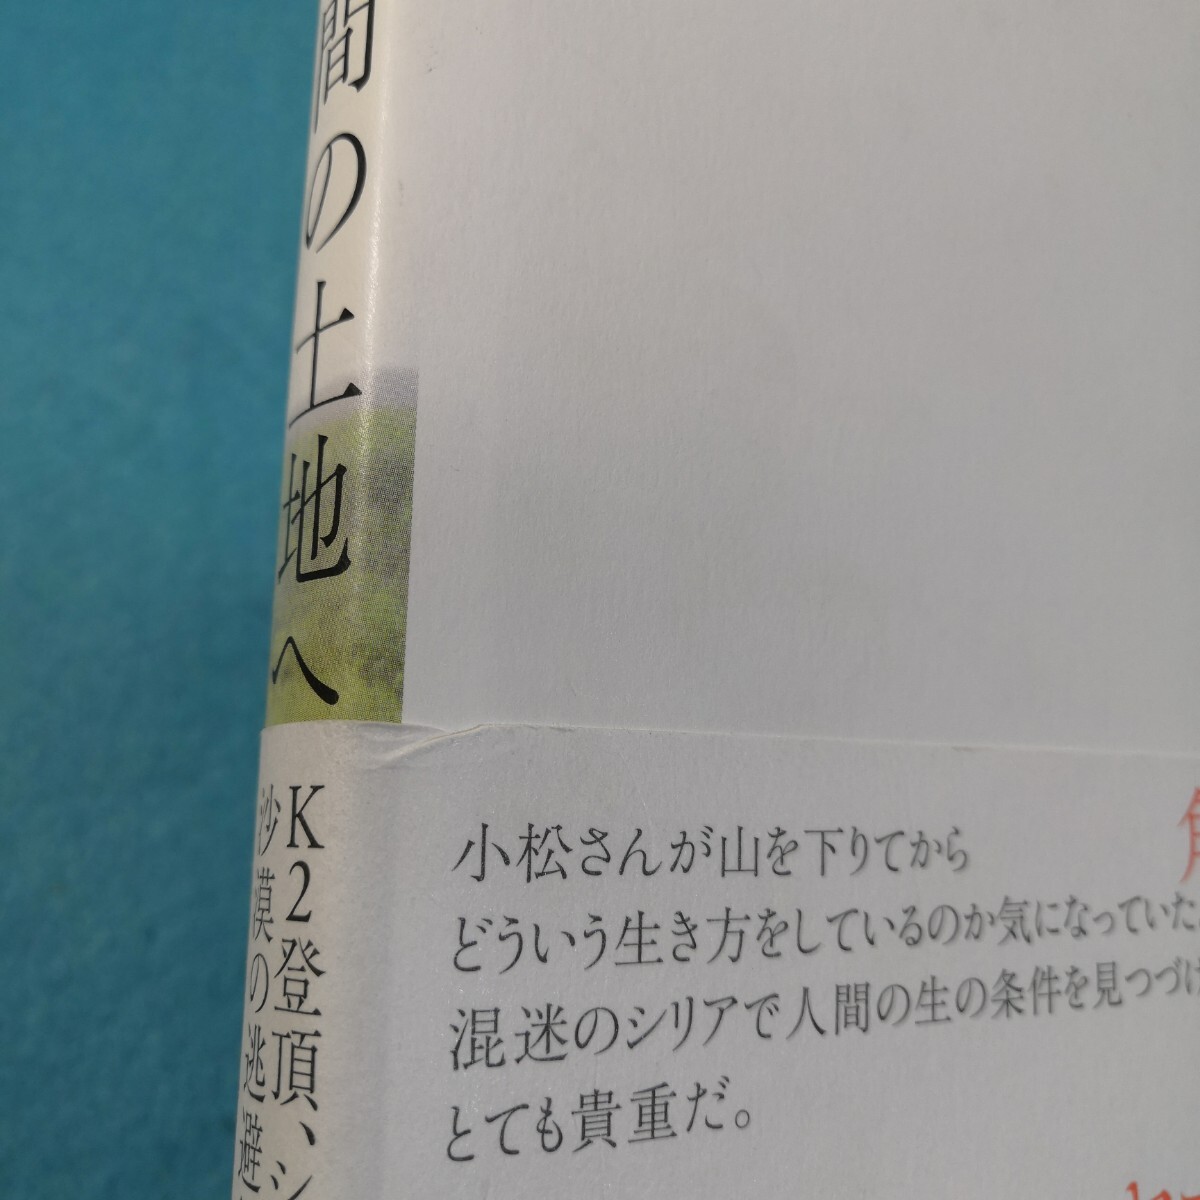 間の土地へ
K2登頂、シ
沙漠の逃避
小松さんが山を下りてから
どういう生き方をしているのか気になっていた
混迷のシリアで人間の生の条件を見つづけ
とても貴重だ。